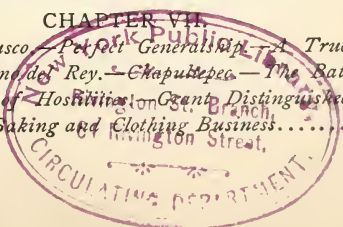 CHAPTER VII.
asco.—Perfect Generalship.—A Tru
no del Rey.—Chapultepec.—The Bat
of Hostilities.—Grant Distinguished
Baking and Clothing Business......
New York Public Library,
Rivington St. Branch,
61 Rivington Street,
CIRCULATING DEPARTMENT.